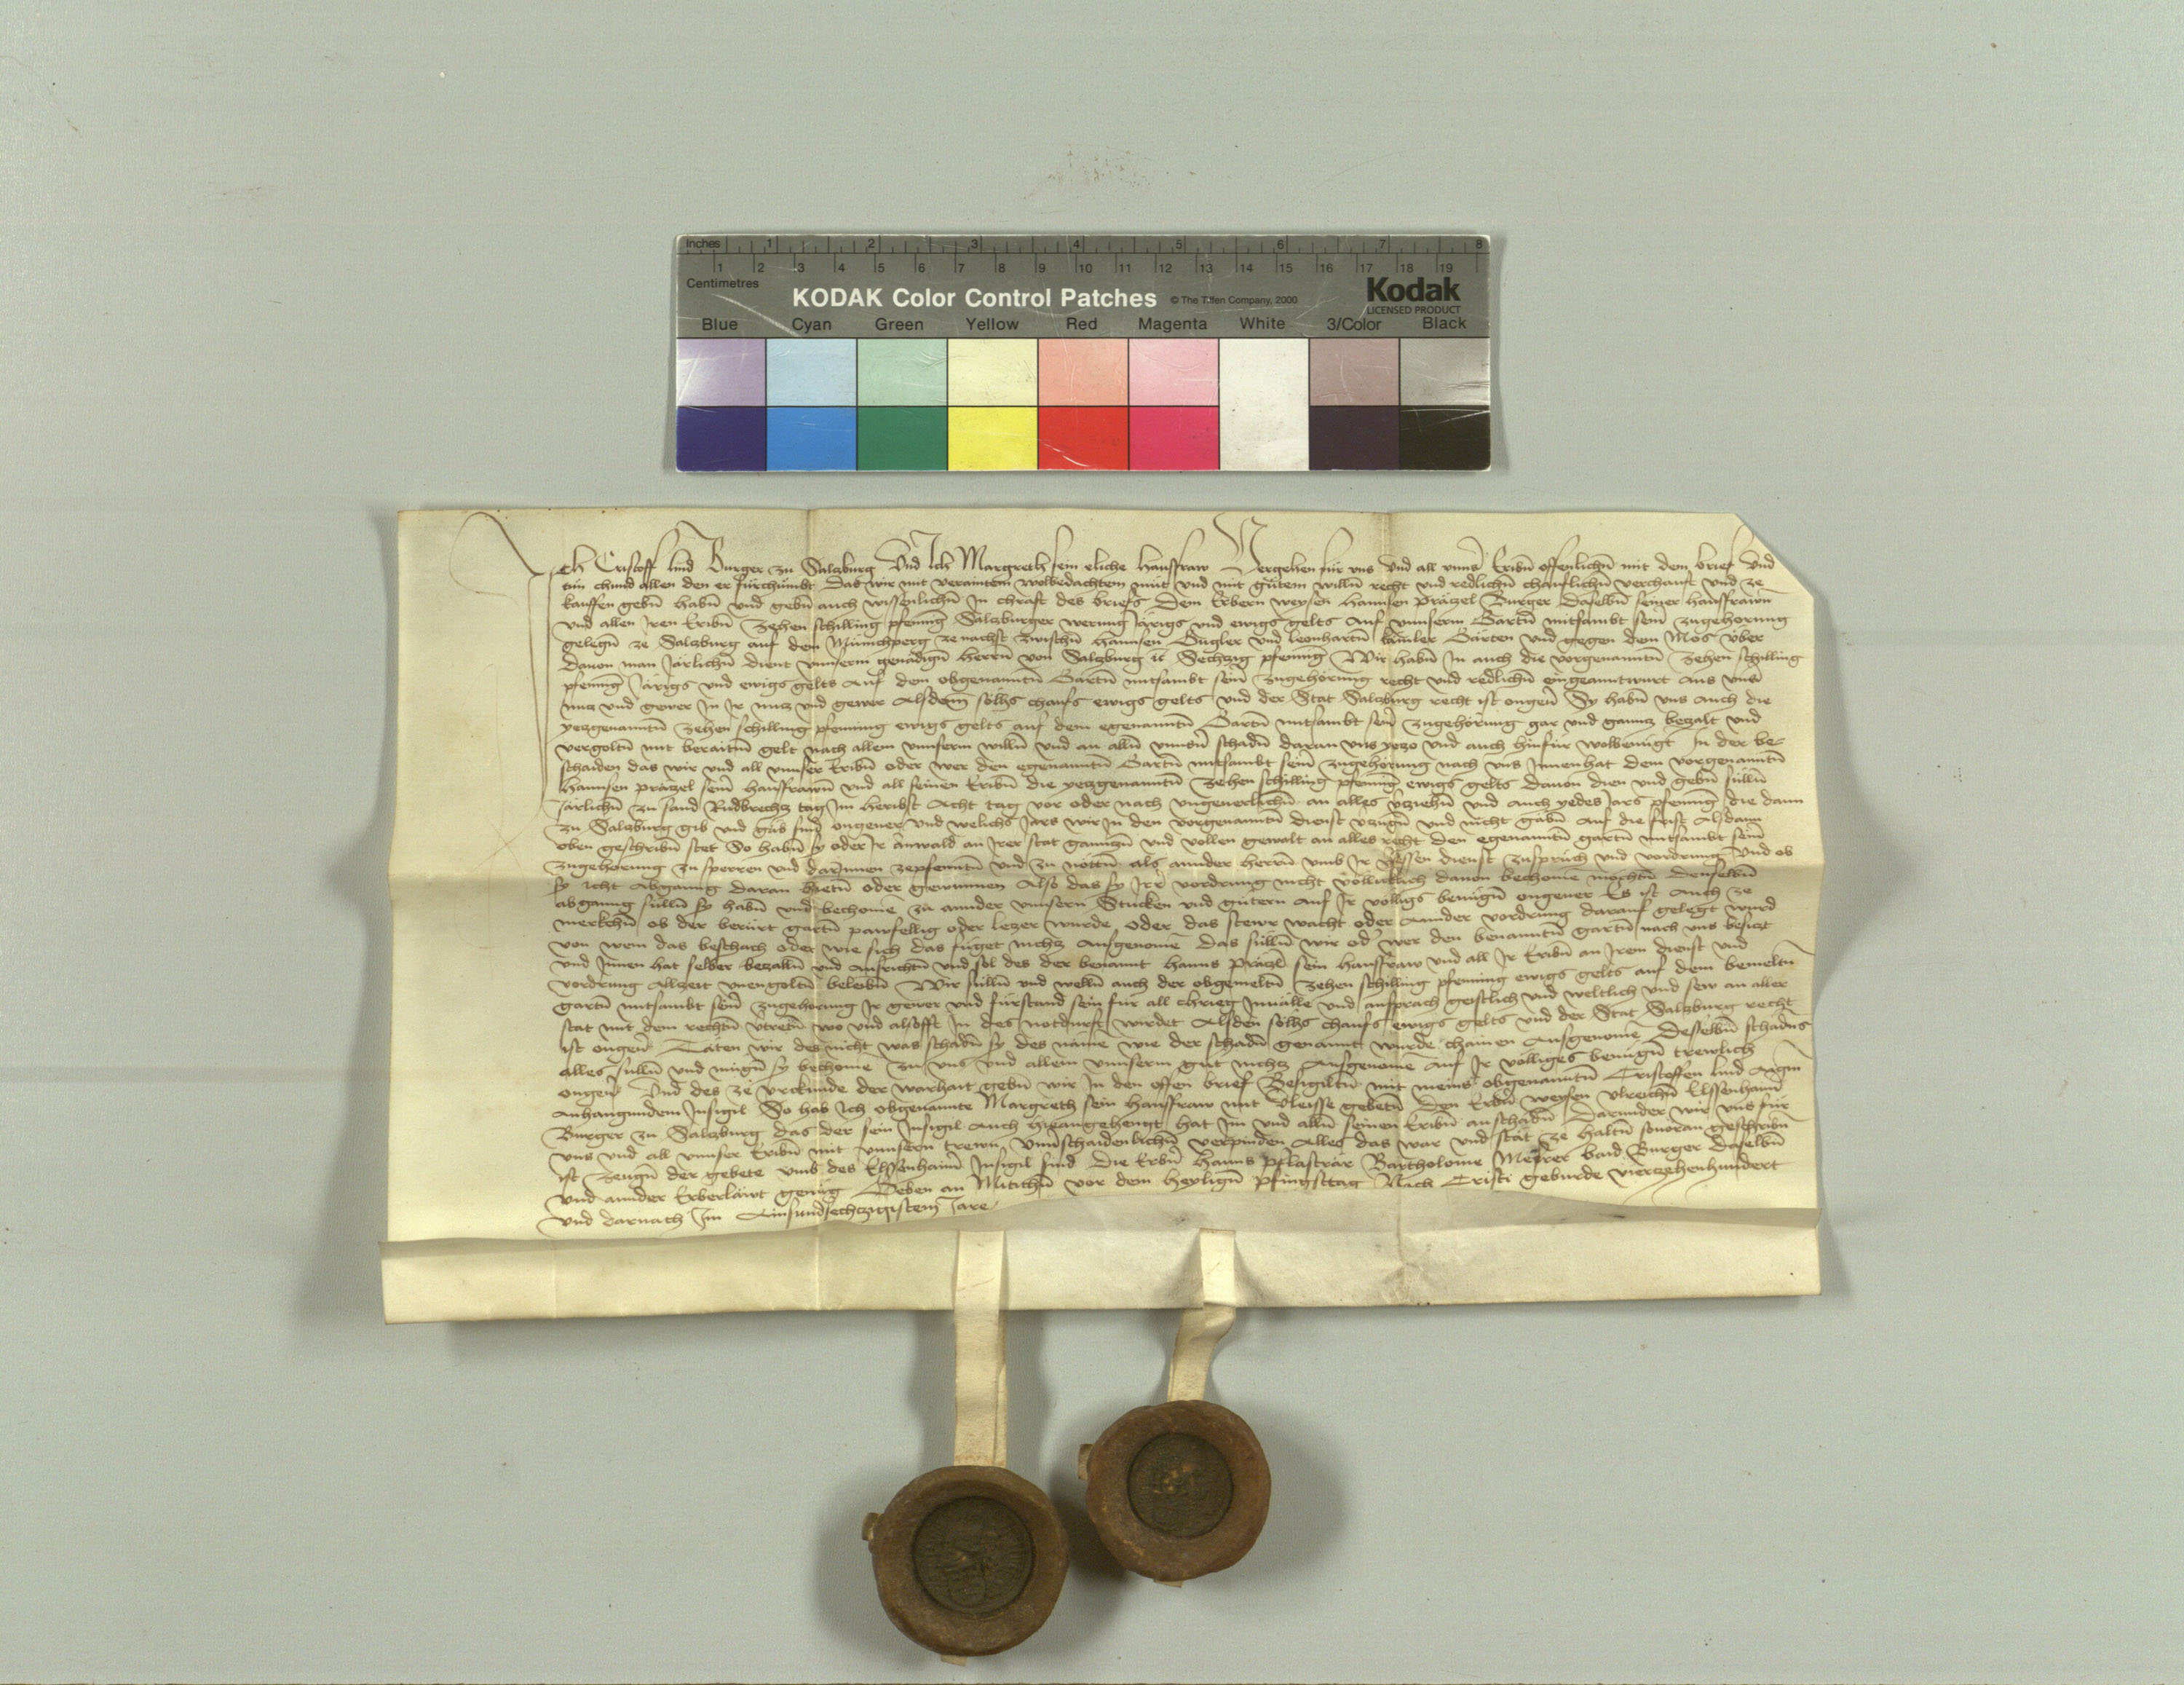 Inches 1 2 3 4 5 6 7 8
1 2 3 4 5 6 7 8 9 10 11 12 13 14 15 16 17 18 19
Centimetres
KODAK Color Control Patches © The Tiffen Company, 2000 Kodak
LICENSED PRODUCT
Blue Cyan Green Yellow Red Magenta White 3/Color Black
Ich Cristoff lind Burger zu Salzburg Und Ich Margreth sein eliche hausfraw Vergehen für uns und all unns Eribn̄ offenlichn̄ mit dem brief Und
tün chund allen den er fürchümbt Das wir mit veraintem wolbedachtem müt und mit gütem willn̄ recht und redlichn̄ chauflichn̄ verchauft und ze
kauffen gebn̄ habn̄ und gebn̄ auch wissenlichn̄ In chraft des briefs Dem Erbern weysen Hannsen Präzel Burger daselbn̄ seiner hausfrawn̄
und allen Iren Eribn̄ Zehen schilling pfennīg Salzburger werung Järigs und ewigs gelts auf unnserm Gartn̄ mitsambt sein̄ zugehörung
gelegn̄ ze Salzburg auf dem Münichperg ze nachst zwischn̄ Hannsen Gugler und Leonhartn̄ Gärten und gegen dem Mos über
dauon man Järlichn̄ dient unnserm genädign̄ herrn̄ von Salzburg Sechzig pfennīg Wir habn̄ In auch die vorgenanntn̄ Zehen schilling
pfennīg Järigs und ewigs gelts auf dem obgenanntn̄ Gartn̄ mitsambt sein̄ zugehörung recht und redlichn̄ eingeanntwurt aus unns̄
nuz und gewer In Ir nuz und gewer Alsdenn̄ sölhs chaufs ewigs gelts und der Stat Salzburg recht ist ongeu̅ Sy habn̄ uns auch die
yezgenanntn̄ Zehen schilling pfenning ewigs gelts auf dem egenanntn̄ Gartn̄ mitsambt sein̄ zugehörung gar und gannz bezalt und
vergoltn̄ mit beraitn̄ gelt nach allem unnserm willn̄ und an alln̄ unnsn̄ schadn̄ daran uns yezo und auch hinfür wolbenügt In der be-
schaiden das wir und all unnser Eribn̄ oder wer den egenanntn̄ Gartn̄ mitsambt sein̄ zugehörung nach uns Innen hat dem vorgenanntn̄
Hannsen Präzel sein̄ hausfrawn̄ und all seinen Eribn̄ die yezgenanntn̄ Zehen schilling pfennīg ewigs gelts dauon dien und gebn̄ sulln̄
Järlichn̄ zu sand Rudbrechtz tag Im heribst Acht tag vor oder nach ungeuerlichn̄ an alles v̄ziehn̄ und auch yedes Jars pfennīg die dann
zu Salzburg gib und gäb sind ongeuer Und welichs Jars wir In den vorgenanntn̄ dienst v̄zugn̄ und nicht gäbn̄ auf die frist Alsdann
oben geschribn̄ stet So habn̄ sy oder Ir anwald an Irer stat gannzn̄ und vollen gewalt an alles recht den egenanntn̄ gartn̄ mitsambt sein̄
zugehörung zu sperren und darInnen zepfenntn̄ und zu nöttn̄ als annder herrn̄ umb Ir dienst zuspruch und vordrung Und ob
sy Icht Abganng daran hietn̄ oder gewunnen Also das sy Irr̄ vordrung nicht völlicklich dauon bechomē möchtn̄ denselbn̄
abganng sulln̄ sy habn̄ und bechomē zu annder unnsern Stucken und gütern auf Ir völligs benügn̄ ongeuer Es ist Auch ze
merkchn̄ ob der berürt gartn̄ pawfellig oder lezer wurde oder das stewr wacht oder annder vordrung darauf gelegt wurd
von wem das beschach oder wie sich das füget nichtz Ausgenomē das sulln̄ wir od̄ wer den benanntn̄ gartn̄ nach uns besitzt
und Innen hat selber bezalln̄ und ausrichtn̄ und sol des der benannt Hanns Präzel sein hausfraw und all Ir Eribn̄ an Irem dienst und
vordrung Allzeit unengoltn̄ beleibn̄ Wir sulln̄ und welln̄ auch der obgemeltn̄ Zehen schilling pfenning ewigs gelts auf dem bemeltn̄
gartn̄ mitsambt sein̄ zugehörung Ir gewer und fürstand sein für all chrieg Inuälle und ansprach geistlich und weltlich und sew an aller
stat mit dem rechtn̄ v̄tretn̄ wo und alsofft In des notdurft wirdet Alsden sölhs chaufs ewigs gelts und der Stat Salzburg recht
ist ongeū Täten wir des nicht was schadn̄ sy des namē wie der schadn̄ genannt wurde chainen Ausgenomē Desselbn̄ schadns
alles sulln̄ und mugn̄ sy bechomē zu uns und allem unnserm gut nichtz Ausgenomē auf Ir völliges benügn̄ trewlich
ongeū Und des ze urchunde der warhait gebn̄ wir In den offen brief Besigiltn̄ mit meins obgenanntn̄ Cristoffen lind Aigm
Anhangundem Insigil So hab Ich obgenannte Margreth sein hausfraw mit vleisse gebetn̄ den Erbn̄ weysen Ulreichn̄ Elssenhaim̄
Burger zu Salzburg das der sein Insigil Auch hieangehengt hat Im und alln̄ seinen Eribn̄ anschadn̄ Darunder wir uns für
uns und all unnser Eribn̄ mit unnsern trewn̄ unuerschaidenlichn̄ verpinden Alles das war und stät ze haltn̄ souoran geschribn̄
ist Zeugn̄ der gebete umb des Elssenhaim̄ Insigil sind die Erbn̄ Hanns Pflastrār Bartholome baid Burger Daselbn̄
und annder Erberläwt genüg Geben an Mitichn̄ vor dem heylign̄ Pfingsttag Nach Cristi geburde Vierzehenhundert
und darnach Im Ainsundsechtzigistem Jare